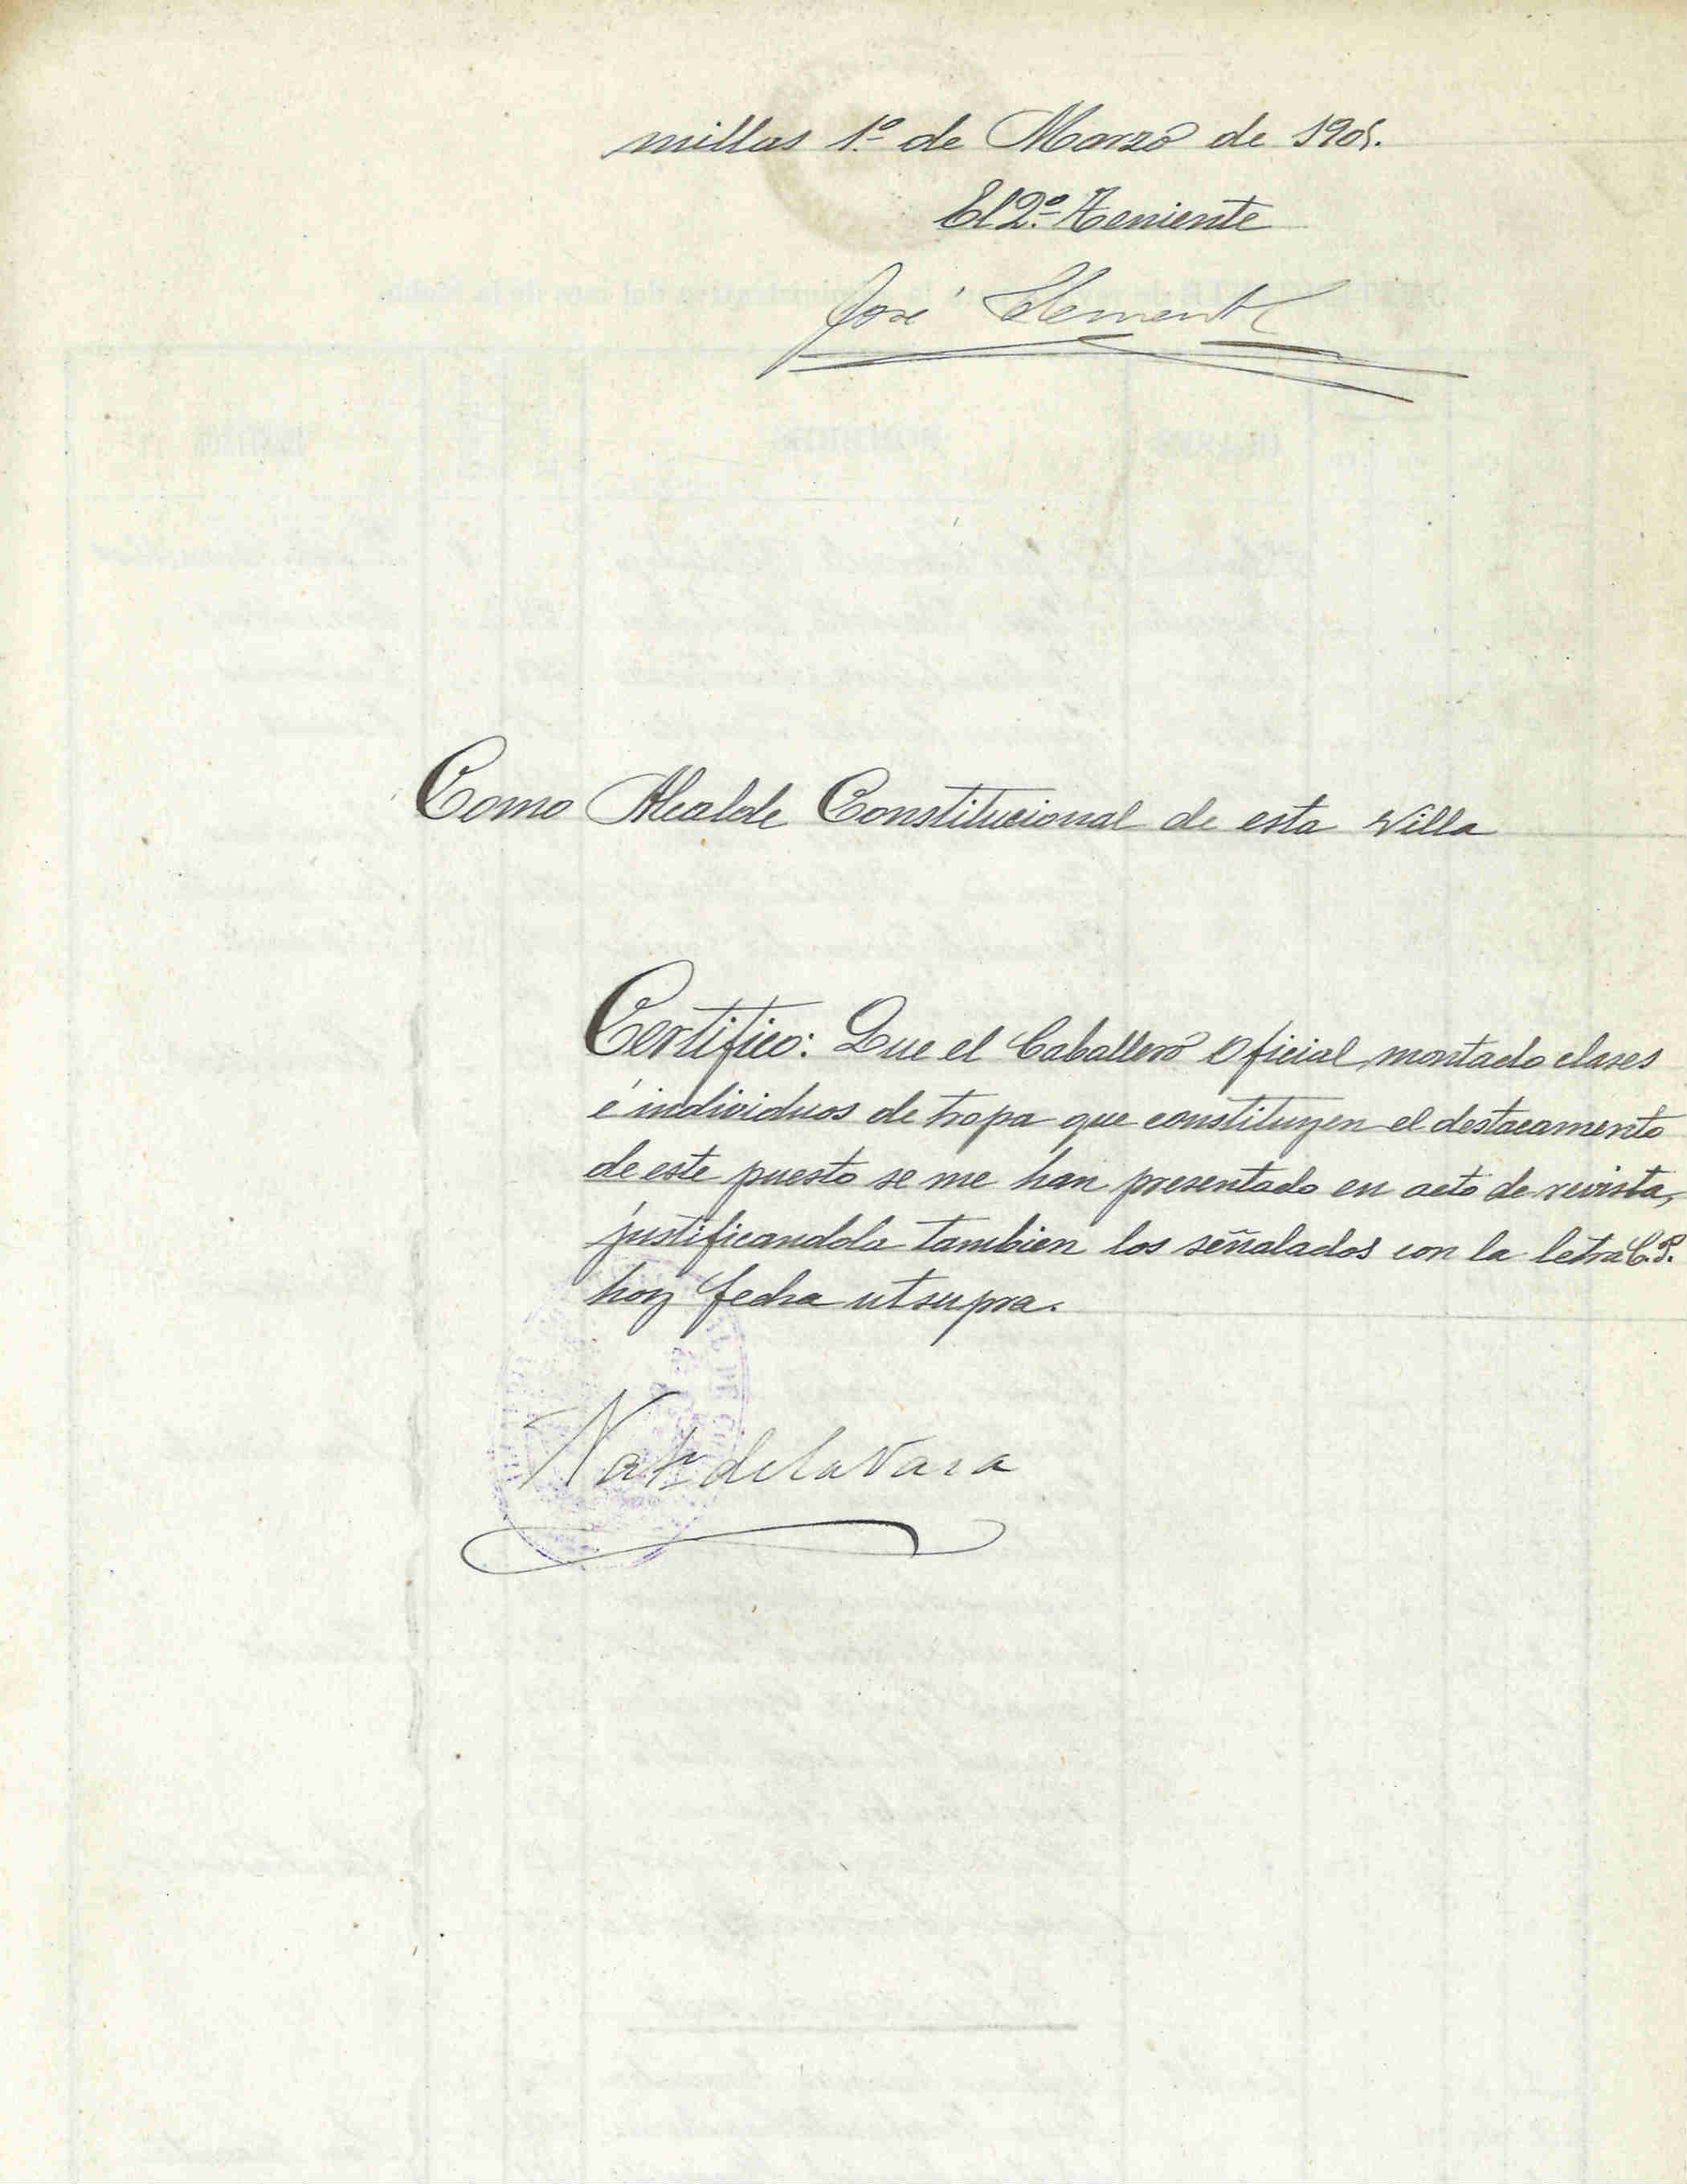 millas 1º de Marzo de 1905.
El 2º Teniente
José Clemente
Como Alcalde Constitucional de esta Villa
Certifico: Que el Caballero Oficial montado clases
é individuos de tropa que constituyen el destacamento
de este puesto se me han presentado en acto de revista,
justificandola tambien los señalados con la letra C.P.
hoy fecha utsupra.
de la Vara